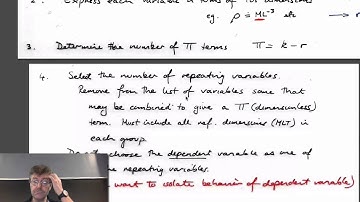 2. Express each variable in terms of its dimensions
eg. ρ = ML⁻³ etc → r
3. Determine the number of Π terms Π = k - r
4. Select the number of repeating variables.
Remove from the list of variables some that
may be combined to give a Π (dimensionless)
term. Must include all ref. dimensions (MLT) in
each group
choose the dependent variable as one of
repeating variables.
want to isolate behavior of dependent variable)